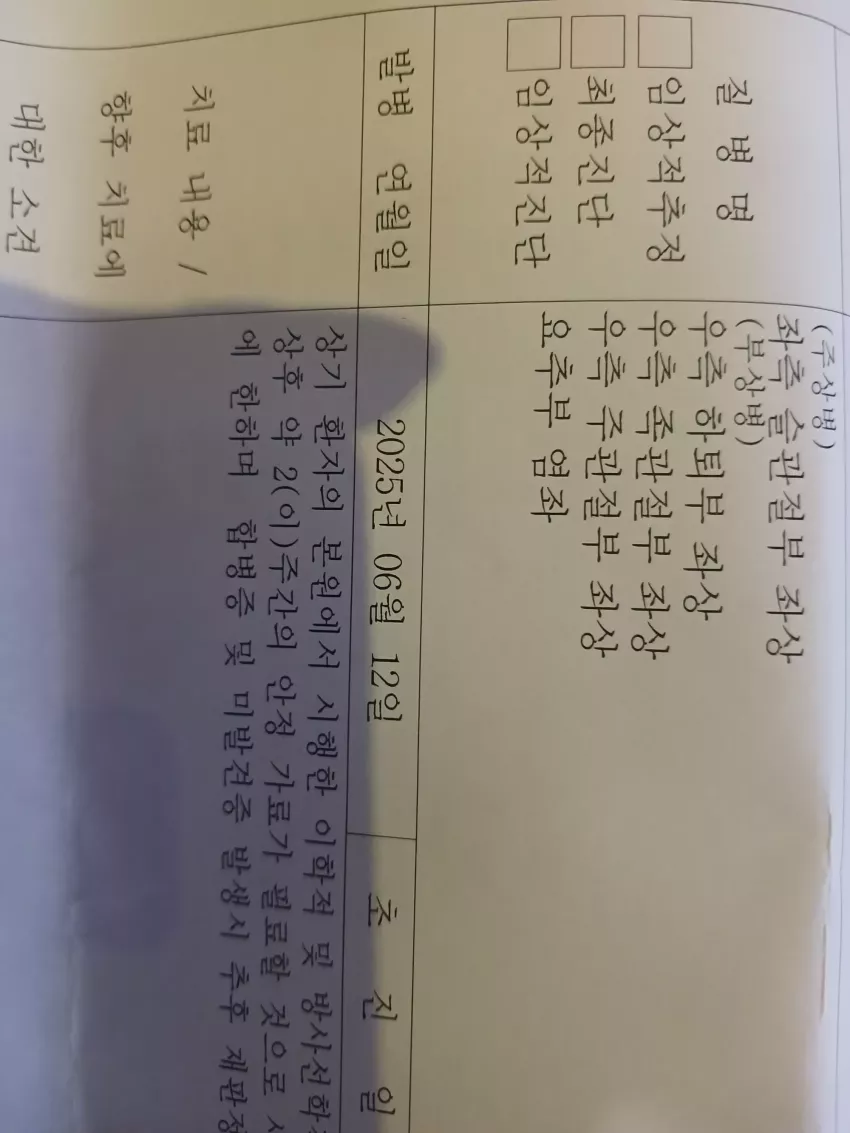 (주상병)
좌측 슬관절부 좌상
(부상병)
우측 하퇴부 좌상
우측 족관절부 좌상
우측 주관절부 좌상
요추부 염좌
질 병 명
임상적추정
최종진단
임상적진단
발병 연월일
2025년 06월 12일
초 진 일
치료 내용 /
향후 치료에
대한 소견
상기 환자의 본원에서 시행한 이학적 및
상후 약 2(이)주간의 안정 가료가 필요할 것으로
에 한하며 합병증 및 미발견증 발생시 추후